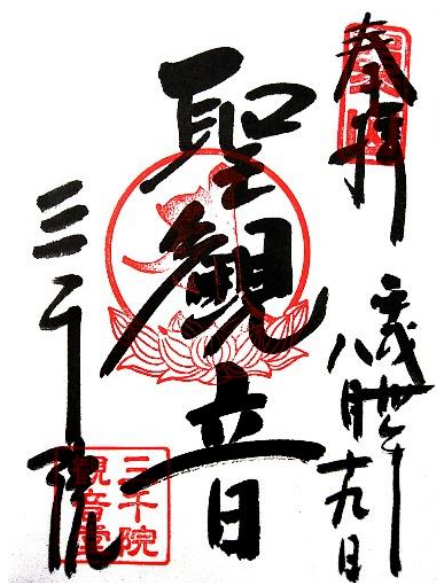 奉拝
平成年
八月十九日
聖観音
三千院
三千院
観音堂